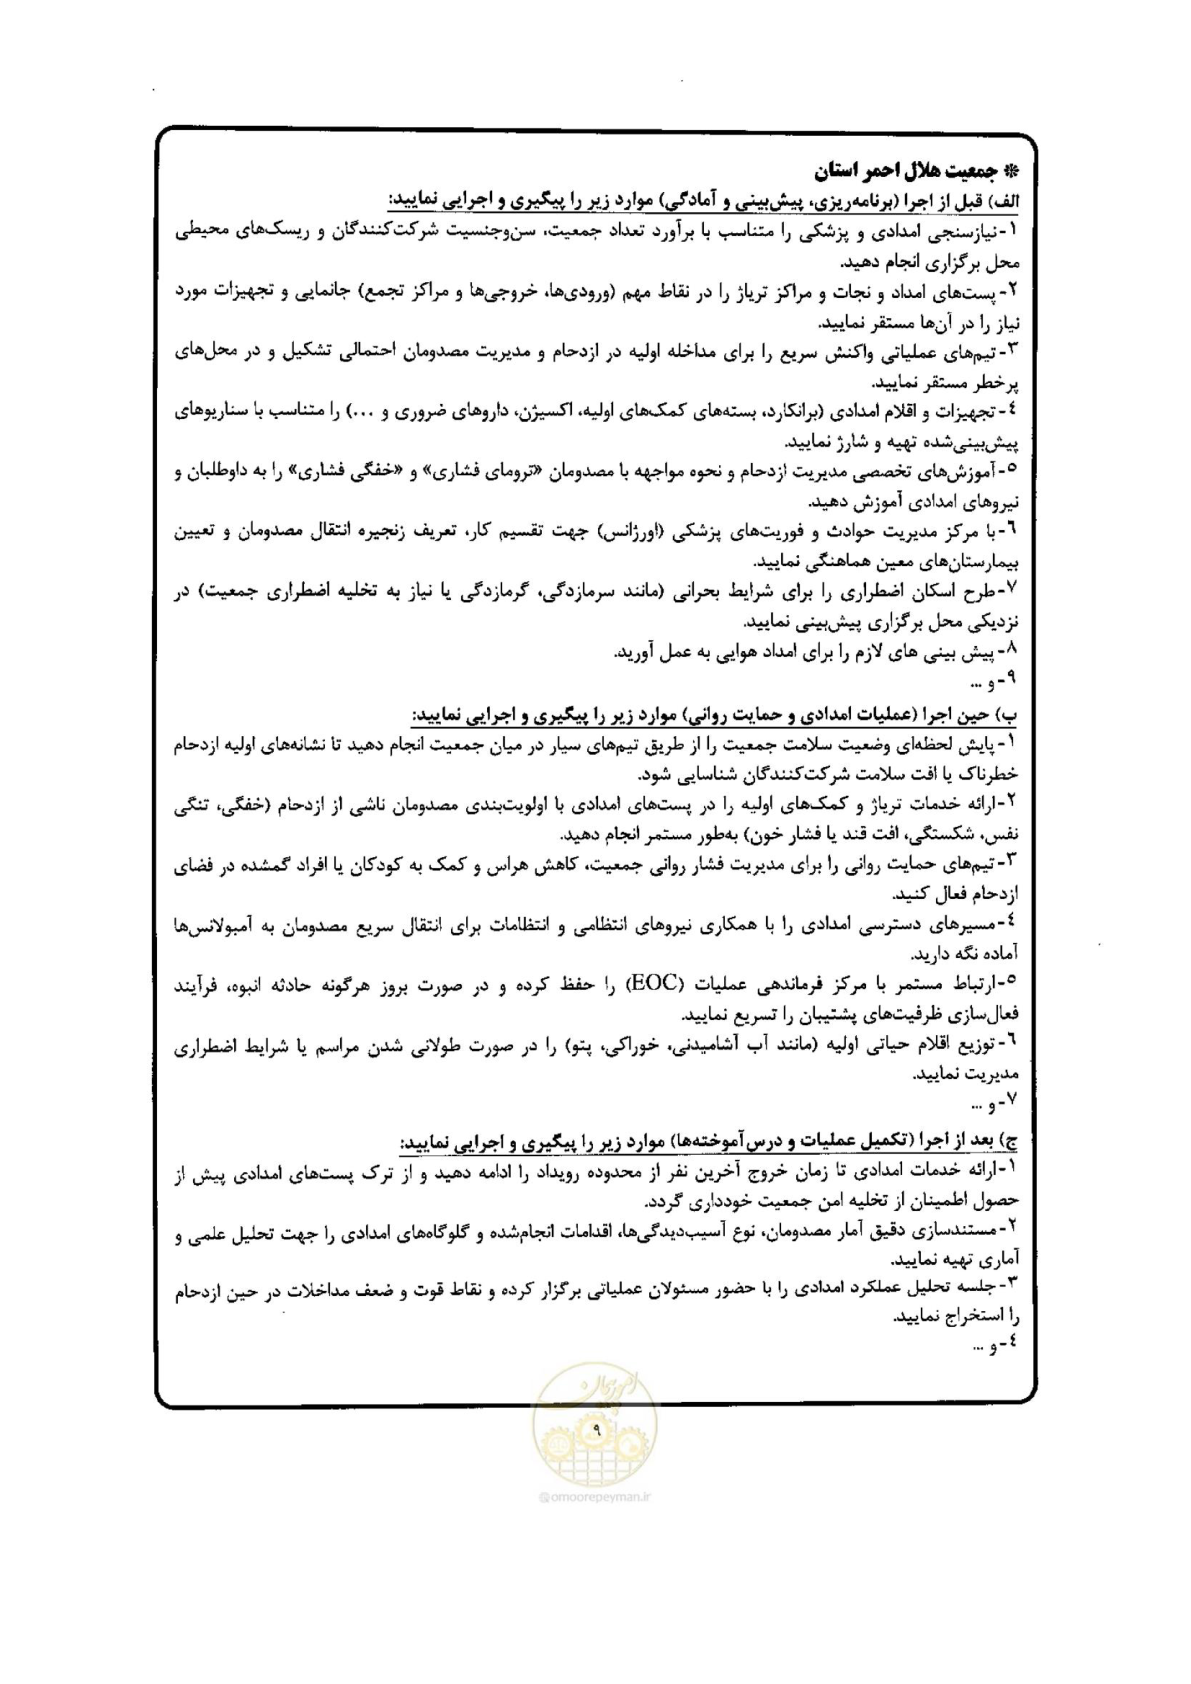 * جمعیت هلال احمر استان
الف) قبل از اجرا (برنامه‌ریزی، پیش‌بینی و آمادگی) موارد زیر را پیگیری و اجرایی نمایید:
۱-نیازسنجی امدادی و پزشکی را متناسب با برآورد تعداد جمعیت، سن‌وجنسیت شرکت‌کنندگان و ریسک‌های محیطی
محل برگزاری انجام دهید.
۲-پست‌های امداد و نجات و مراکز تریاژ را در نقاط مهم (ورودی‌ها، خروجی‌ها و مراکز تجمع) جانمایی و تجهیزات مورد
نیاز را در آن‌ها مستقر نمایید.
۳-تیم‌های عملیاتی واکنش سریع را برای مداخله اولیه در ازدحام و مدیریت مصدومان احتمالی تشکیل و در محل‌های
پرخطر مستقر نمایید.
۴-تجهیزات و اقلام امدادی (برانکارد، بسته‌های کمک‌های اولیه، اکسیژن، داروهای ضروری و ...) را متناسب با سناریوهای
پیش‌بینی‌شده تهیه و شارژ نمایید.
۵-آموزش‌های تخصصی مدیریت ازدحام و نحوه مواجهه با مصدومان «ترومای فشاری» و «خفگی فشاری» را به داوطلبان و
نیروهای امدادی آموزش دهید.
۶-با مرکز مدیریت حوادث و فوریت‌های پزشکی (اورژانس) جهت تقسیم کار، تعریف زنجیره انتقال مصدومان و تعیین
بیمارستان‌های معین هماهنگی نمایید.
۷-طرح اسکان اضطراری را برای شرایط بحرانی (مانند سرمازدگی، گرمازدگی یا نیاز به تخلیه اضطراری جمعیت) در
نزدیکی محل برگزاری پیش‌بینی نمایید.
۸-پیش بینی های لازم را برای امداد هوایی به عمل آورید.
۹-و ...
ب) حین اجرا (عملیات امدادی و حمایت روانی) موارد زیر را پیگیری و اجرایی نمایید:
۱-پایش لحظه‌ای وضعیت سلامت جمعیت را از طریق تیم‌های سیار در میان جمعیت انجام دهید تا نشانه‌های اولیه ازدحام
خطرناک یا افت سلامت شرکت‌کنندگان شناسایی شود.
۲-ارائه خدمات تریاژ و کمک‌های اولیه را در پست‌های امدادی با اولویت‌بندی مصدومان ناشی از ازدحام (خفگی، تنگی
نفس، شکستگی، افت قند یا فشار خون) به‌طور مستمر انجام دهید.
۳-تیم‌های حمایت روانی را برای مدیریت فشار روانی جمعیت، کاهش هراس و کمک به کودکان یا افراد گمشده در فضای
ازدحام فعال کنید.
۴-مسیرهای دسترسی امدادی را با همکاری نیروهای انتظامی و انتظامات برای انتقال سریع مصدومان به آمبولانس‌ها
آماده نگه دارید.
۵-ارتباط مستمر با مرکز فرماندهی عملیات (EOC) را حفظ کرده و در صورت بروز هرگونه حادثه انبوه، فرآیند
فعال‌سازی ظرفیت‌های پشتیبان را تسریع نمایید.
۶-توزیع اقلام حیاتی اولیه (مانند آب آشامیدنی، خوراکی، پتو) را در صورت طولانی شدن مراسم یا شرایط اضطراری
مدیریت نمایید.
۷-و ...
ج) بعد از اجرا (تکمیل عملیات و درس‌آموخته‌ها) موارد زیر را پیگیری و اجرایی نمایید:
۱-ارائه خدمات امدادی تا زمان خروج آخرین نفر از محدوده رویداد را ادامه دهید و از ترک پست‌های امدادی پیش از
حصول اطمینان از تخلیه امن جمعیت خودداری گردد.
۲-مستندسازی دقیق آمار مصدومان، نوع آسیب‌دیدگی‌ها، اقدامات انجام‌شده و گلوگاه‌های امدادی را جهت تحلیل علمی و
آماری تهیه نمایید.
۳-جلسه تحلیل عملکرد امدادی را با حضور مسئولان عملیاتی برگزار کرده و نقاط قوت و ضعف مداخلات در حین ازدحام
را استخراج نمایید.
۴-و ...
امور پیمان
۹
@omoorepeyman.ir